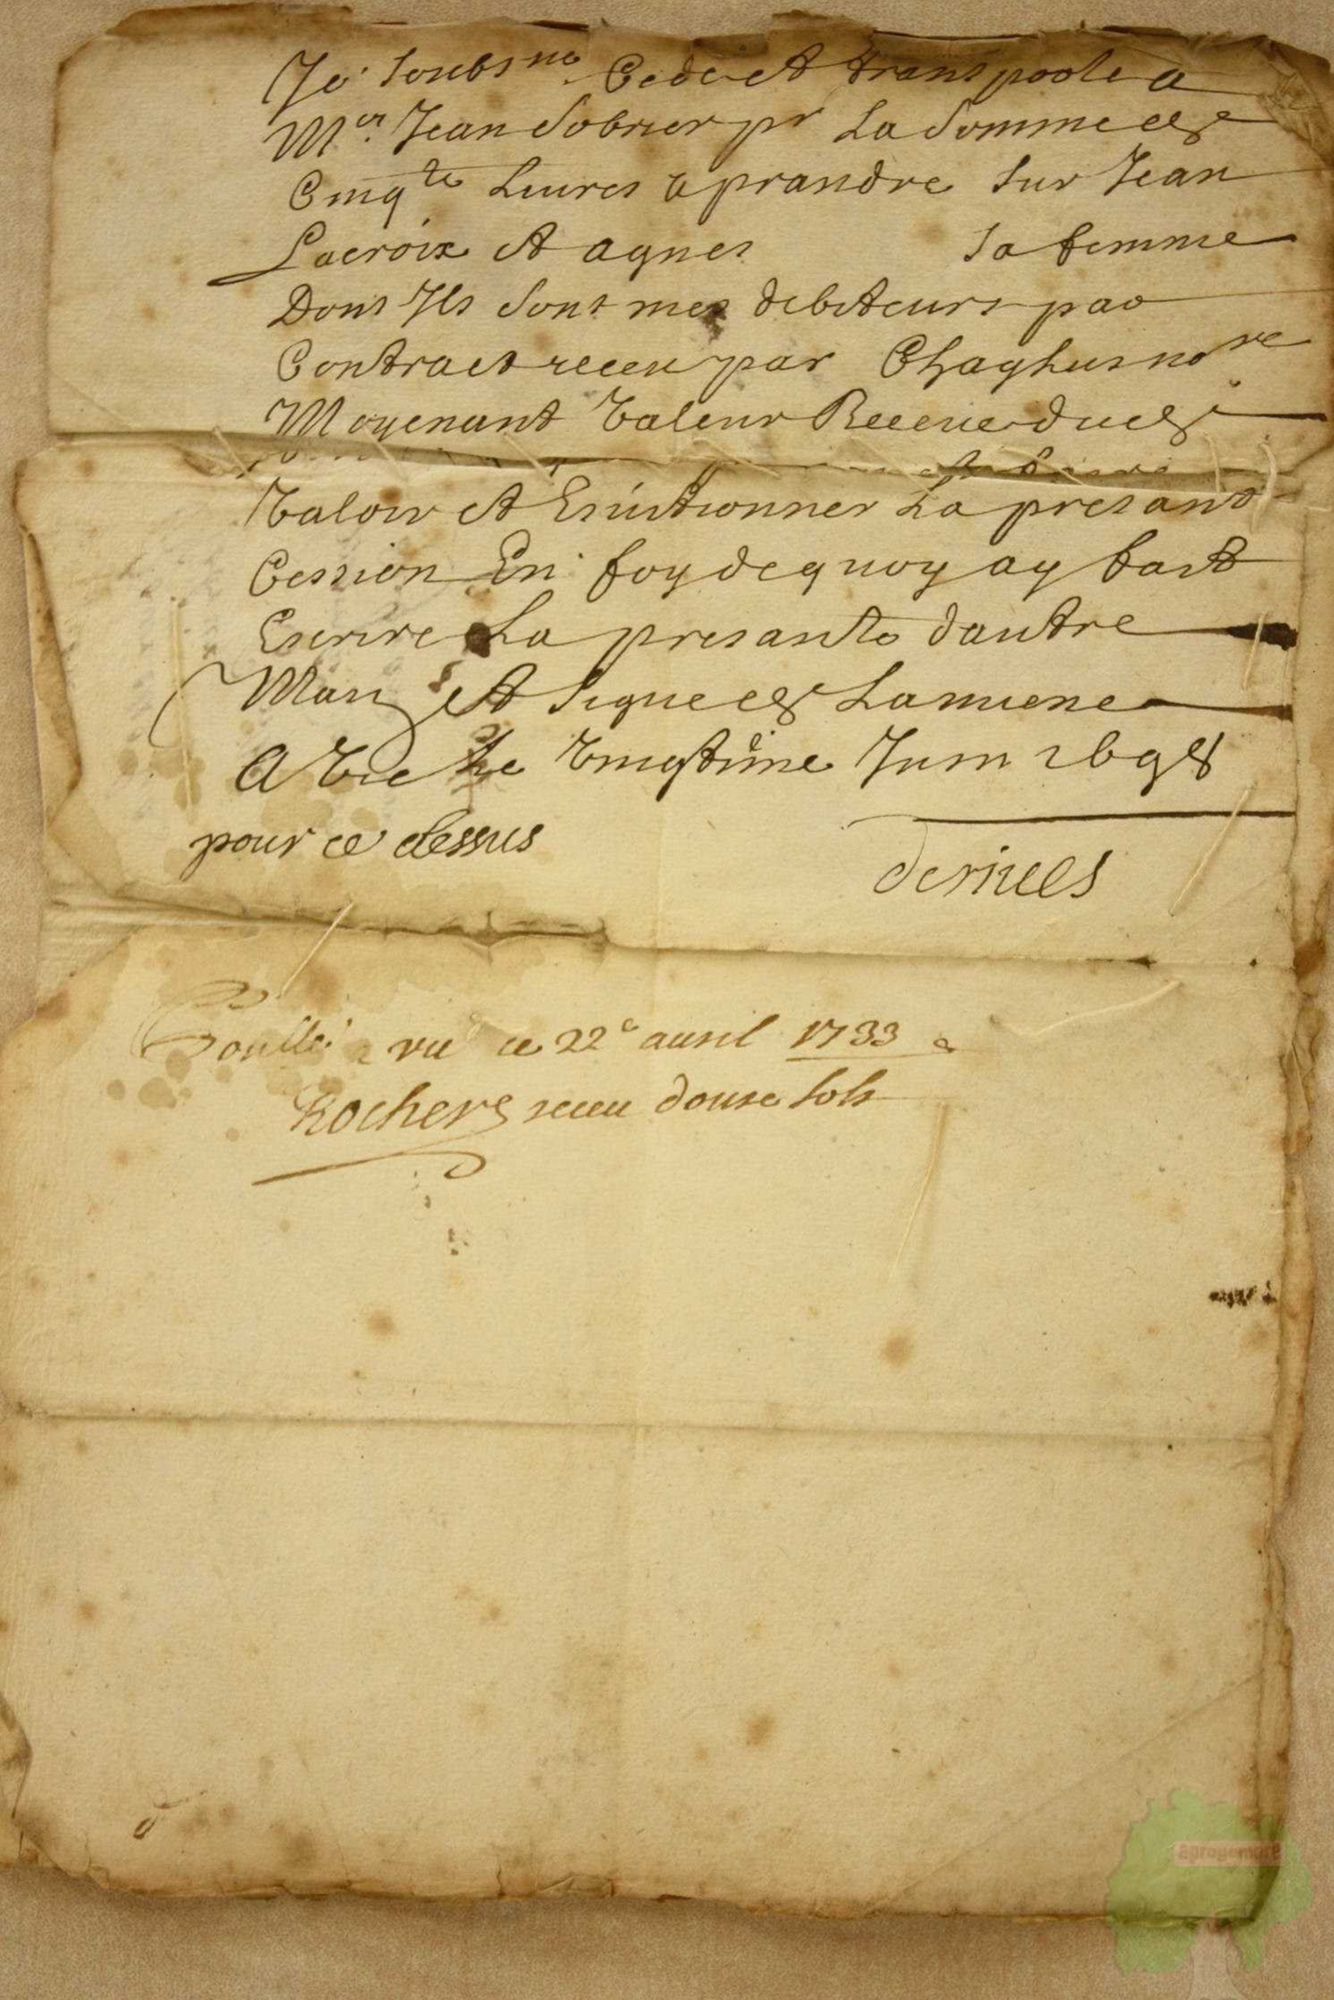 Je soubs.ne Cede et transpoole a
Mer. Jean Sobrier pr La Somme de
Cinqte Liures a prandre sur Jean
Lacroix et agnes sa femme
Dont Ils sont mes debiteurs par
Contract receu par Chaghus nore
Moyenant Valeur Receue du
et faire
Valoir et La presant
Cession En foy de quoy ay fait
Escrire La presante dautre
Main et signe de La miene
A Vic Le Vingtiime Juin
pour ce dessus deriues
vu ce 22e auril 1733
Rochers receu douse sols
aprogemere